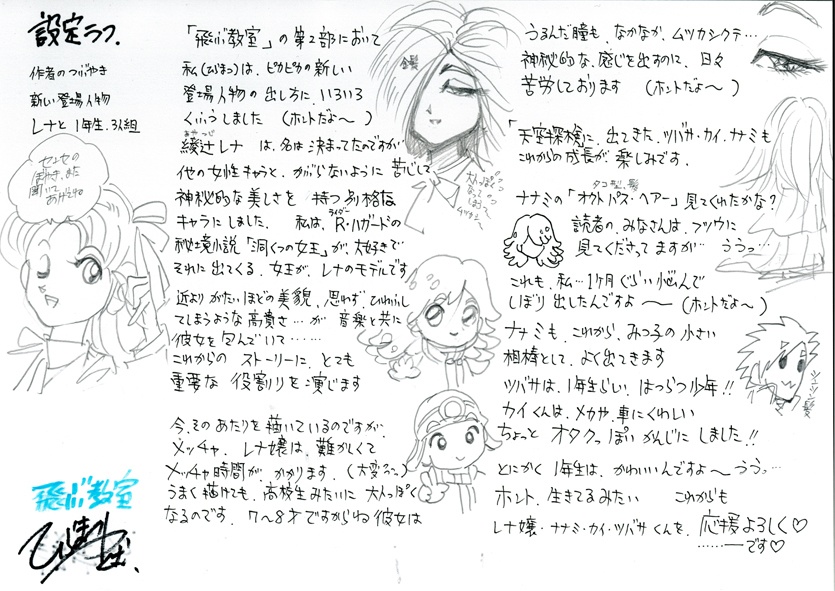 設定ラフ.
作者のつぶやき
新しい登場人物
レナと1年生.3人組
センセの
聞いて
あげてね
「飛ぶ教室」の第2部において
私(ひらまつ)は、ピカピカの新しい
登場人物の出し方に、いろいろ
くふうしました (ホントだよ～)
綾辻レナ は、名は決まってたのですが
あやつじ
他の女性キャラと、かぶらないように苦心して
神秘的な美しさを 持つ別格な
キャラにしました. 私は、R・ハガードの
ライダー
秘境小説「洞くつの女王」が、大好きで
それに出てくる、女王が、レナのモデルです
近よりがたいほどの美貌、思わず、ひれふし
てしまうような高貴さ…が 音楽と共に
彼女を包んでいて……
これからの ストーリーに、とても
重要な 役割りを演じます
今、そのあたりを描いているのですが、
メッチャ、レナ嬢は、難かしくて
メッチャ時間が、かかります、(大変ぅ…)
うまく描けても、高校生みたいに 大人っぽく
なるのです. 7～8才ですからね 彼女は
金髪
大人っぽく
なって
しまう
ムツカシ～
うるんだ瞳も、なかなか、ムツカシクテ…
神秘的な、感じを出すのに、日々
苦労しております (ホントだよ～)
「天空探検」に、出てきた、ツバサ・カイ・ナミも
これからの成長が 楽しみです.
タコ型、髪
ナナミの「オクトパス・ヘアー」見てくれたかな?
読者の、みなさんは、フツウに
見てくださってますが… ううっ…
これも、私…1ヶ月ぐらい悩んで
しぼり出したんですよ ～ (ホントだよ～)
ナナミも、これから、みつ子の小さい
相棒として、よく出てきます
ツバサは、1年生らしい、はつらつ少年!!
カイくんは、メカや、車にくわしい
ちょっと オタクっぽい かんじにしました!!
とにかく1年生は、かわいいんですよ～ううっ…
ホント、生きてるみたい これからも
レナ嬢・ナナミ・カイ・ツバサくんを、応援よろしく♡
……ーです♡
飛ぶ教室